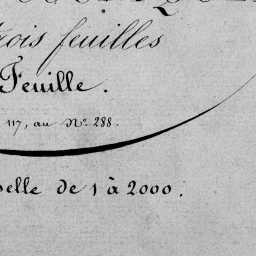 rois feuilles
Feuille.
117, au Nº 288.
elle de 1 à 2000.